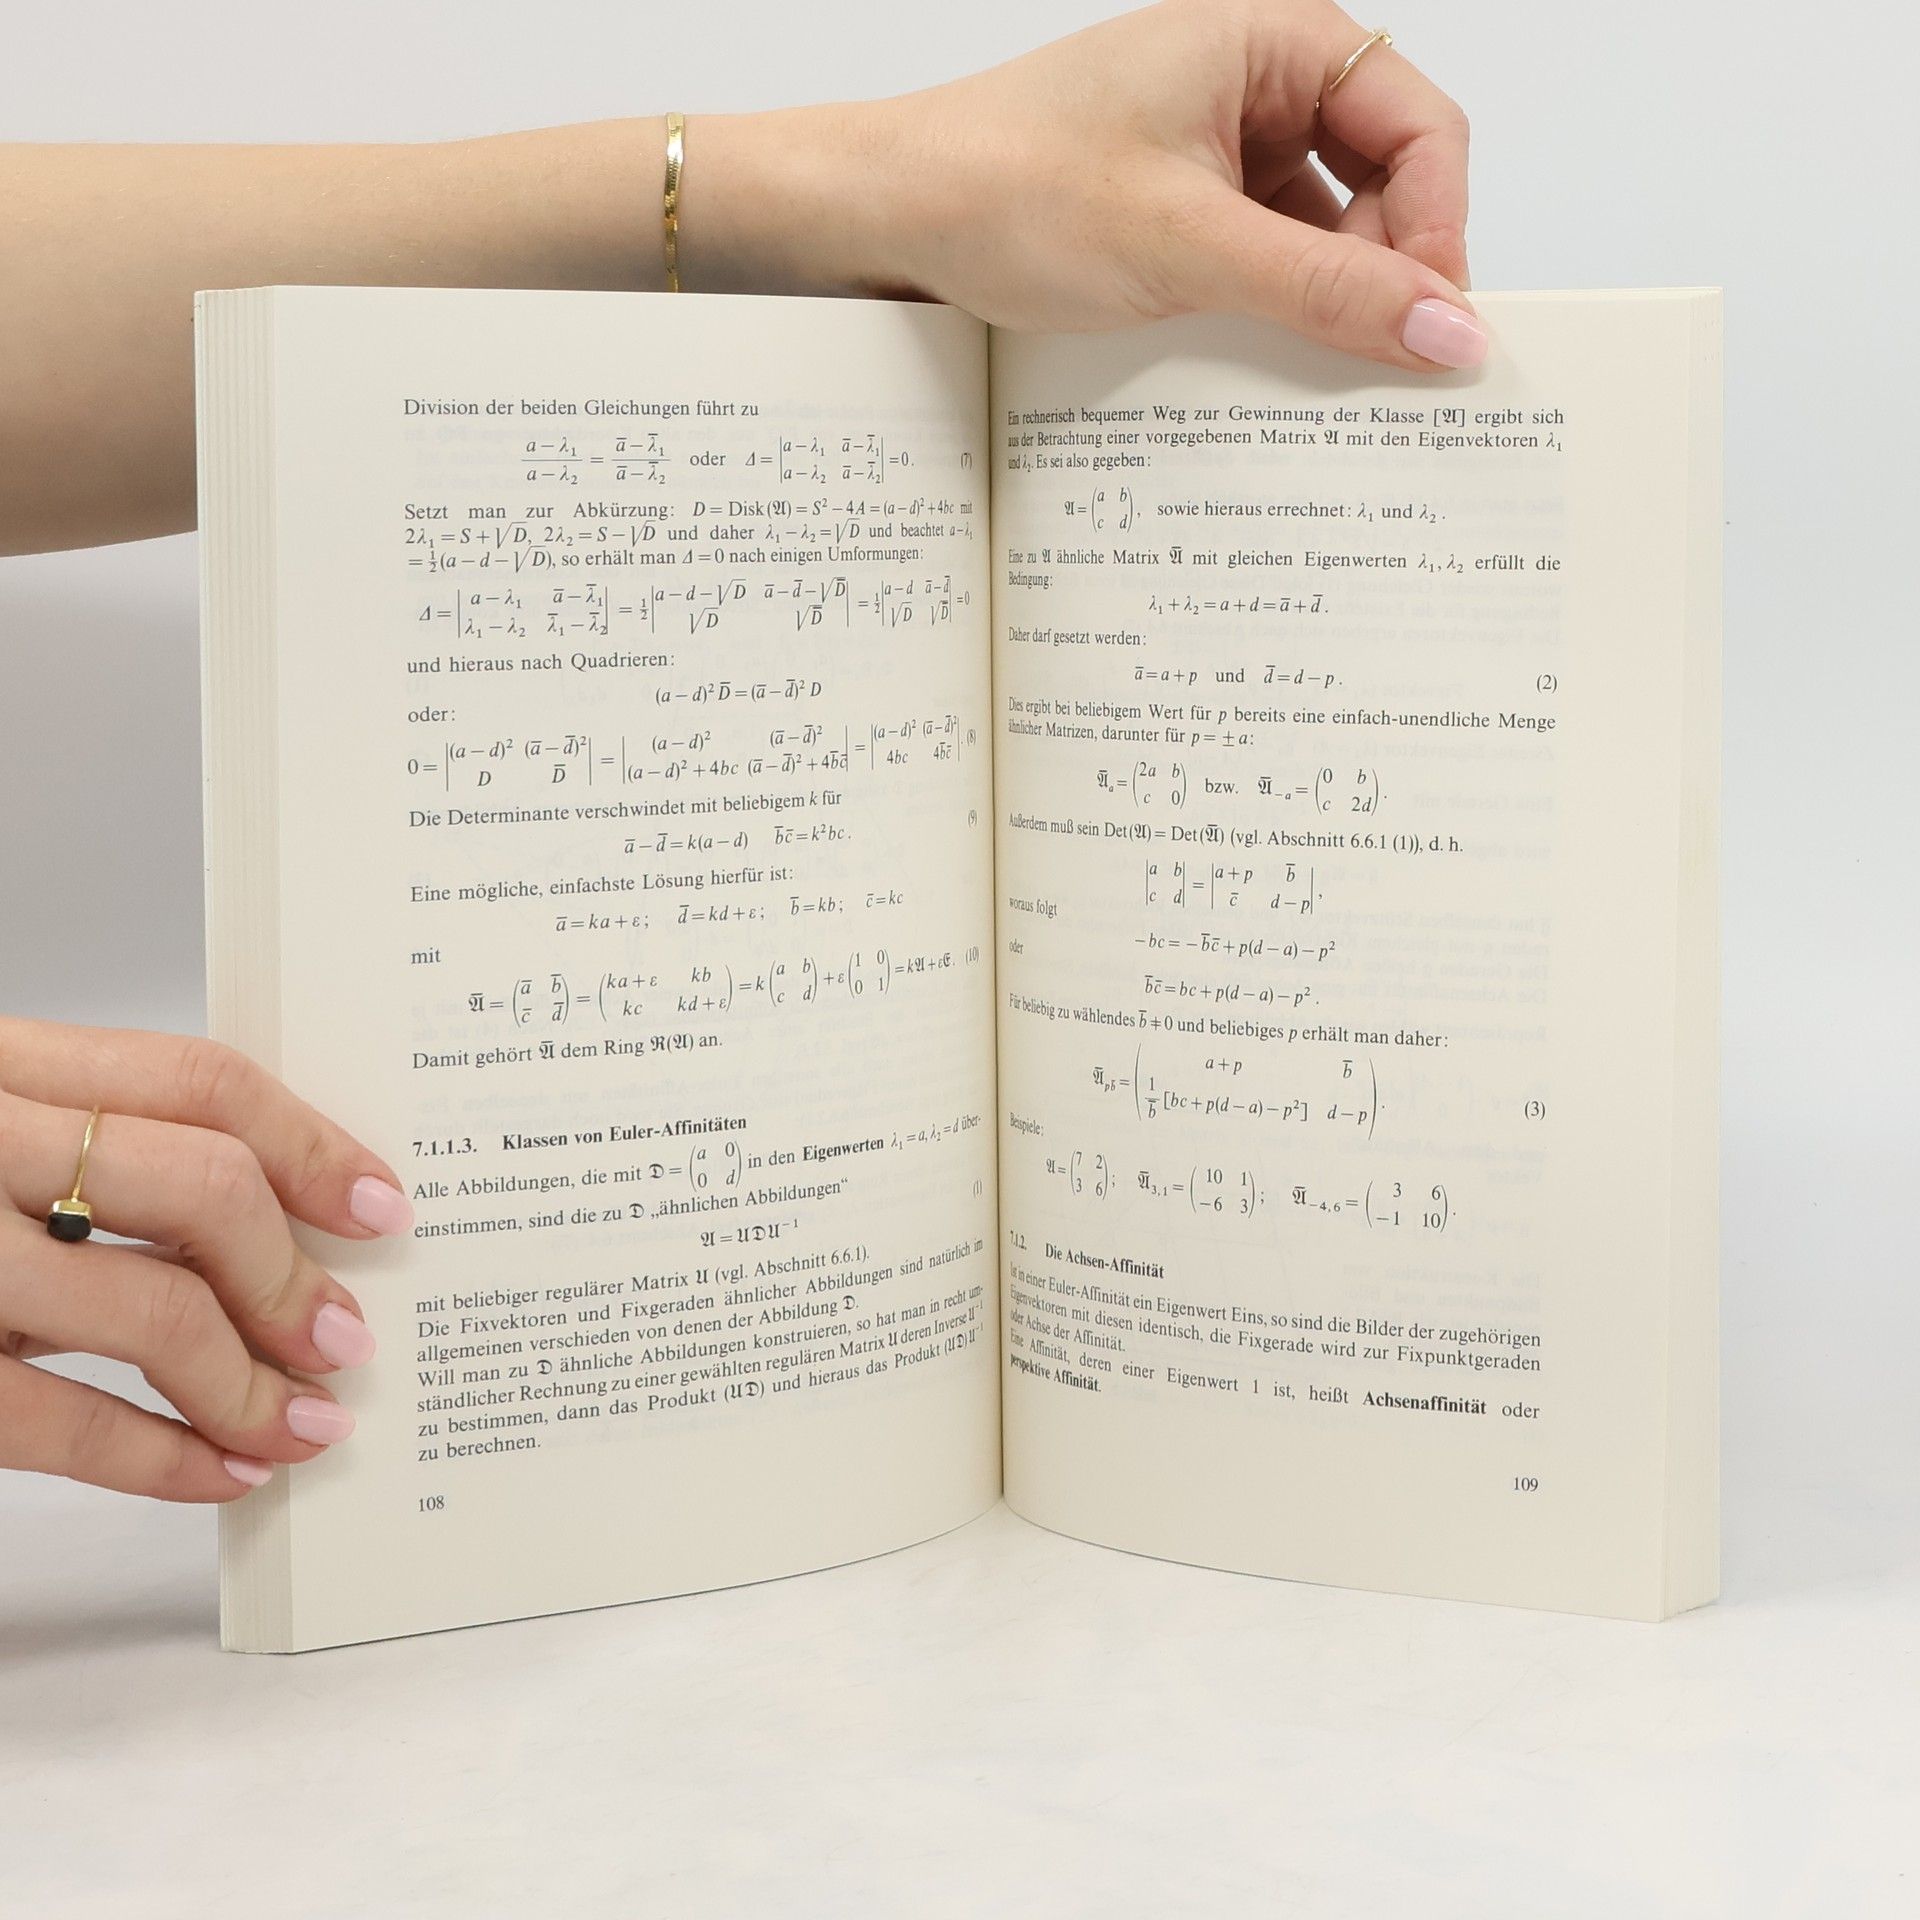 Division der beiden Gleichungen führt zu
(a−λ₁)/(a−λ₂) = (a̅−λ̅₁)/(a̅−λ̅₂) oder Δ = |a−λ₁ a̅−λ̅₁; a−λ₂ a̅−λ̅₂| = 0. (7)
Setzt man zur Abkürzung: D = Disk(𝔄) = S² − 4A = (a−d)² + 4bc mit
2λ₁ = S + √D, 2λ₂ = S − √D und daher λ₁ − λ₂ = √D und beachtet a−λ₁
= ½(a − d − √D), so erhält man Δ = 0 nach einigen Umformungen:
Δ = |a−λ₁ a̅−λ̅₁; λ₁−λ₂ λ̅₁−λ̅₂| = ½|a−d−√D a̅−d̅−√D̅; √D √D̅| = ½|a−d a̅−d̅; √D √D̅| = 0
und hieraus nach Quadrieren:
(a−d)² D̅ = (a̅−d̅)² D
oder:
0 = |(a−d)² (a̅−d̅)²; D D̅| = |(a−d)² (a̅−d̅)²; (a−d)²+4bc (a̅−d̅)²+4b̅c̅| = |(a−d)² (a̅−d̅)²; 4bc 4b̅c̅|. (8)
Die Determinante verschwindet mit beliebigem k für
a̅−d̅ = k(a−d) b̅c̅ = k²bc. (9)
Eine mögliche, einfachste Lösung hierfür ist:
a̅ = ka + ε; d̅ = kd + ε; b̅ = kb; c̅ = kc
mit
𝔄̅ = (a̅ b̅; c̅ d̅) = (ka+ε kb; kc kd+ε) = k(a b; c d) + ε(1 0; 0 1) = k𝔄 + ε𝔈. (10)
Damit gehört 𝔄̅ dem Ring ℜ(𝔄) an.
7.1.1.3. Klassen von Euler-Affinitäten
Alle Abbildungen, die mit 𝔇 = (a 0; 0 d) in den Eigenwerten λ₁ = a, λ₂ = d über-
einstimmen, sind die zu 𝔇 „ähnlichen Abbildungen“
𝔄 = 𝔘𝔇𝔘⁻¹ (1)
mit beliebiger regulärer Matrix 𝔘 (vgl. Abschnitt 6.6.1).
Die Fixvektoren und Fixgeraden ähnlicher Abbildungen sind natürlich im
allgemeinen verschieden von denen der Abbildung 𝔇.
Will man zu 𝔇 ähnliche Abbildungen konstruieren, so hat man in recht um-
ständlicher Rechnung zu einer gewählten regulären Matrix 𝔘 deren Inverse 𝔘⁻¹
zu bestimmen, dann das Produkt (𝔘𝔇) und hieraus das Produkt (𝔘𝔇)𝔘⁻¹
zu berechnen.
108
Ein rechnerisch bequemer Weg zur Gewinnung der Klasse [𝔄] ergibt sich
aus der Betrachtung einer vorgegebenen Matrix 𝔄 mit den Eigenvektoren λ₁
und λ₂. Es sei also gegeben:
𝔄 = (a b; c d), sowie hieraus errechnet: λ₁ und λ₂.
Eine zu 𝔄 ähnliche Matrix 𝔄̅ mit gleichen Eigenwerten λ₁, λ₂ erfüllt die
Bedingung:
λ₁ + λ₂ = a + d = a̅ + d̅.
Daher darf gesetzt werden:
a̅ = a + p und d̅ = d − p. (2)
Dies ergibt bei beliebigem Wert für p bereits eine einfach-unendliche Menge
ähnlicher Matrizen, darunter für p = ± a:
𝔄̅ₐ = (2a b; c 0) bzw. 𝔄̅₋ₐ = (0 b; c 2d).
Außerdem muß sein Det(𝔄) = Det(𝔄̅) (vgl. Abschnitt 6.6.1 (1)), d. h.
|a b; c d| = |a+p b̅; c̅ d−p|,
woraus folgt
−bc = −b̅c̅ + p(d−a) − p²
oder
b̅c̅ = bc + p(d−a) − p².
Für beliebig zu wählendes b̅ ≠ 0 und beliebiges p erhält man daher:
𝔄̅_pb̅ = (a+p b̅; 1/b̅ [bc + p(d−a) − p²] d−p). (3)
Beispiele:
𝔄 = (7 2; 3 6); 𝔄̅₃,₁ = (10 1; −6 3); 𝔄̅₋₄,₆ = (3 6; −1 10).
7.1.2. Die Achsen-Affinität
Ist in einer Euler-Affinität ein Eigenwert Eins, so sind die Bilder der zugehörigen
Eigenvektoren mit diesen identisch, die Fixgerade wird zur Fixpunktgeraden
oder Achse der Affinität.
Eine Affinität, deren einer Eigenwert 1 ist, heißt Achsenaffinität oder
perspektive Affinität.
109